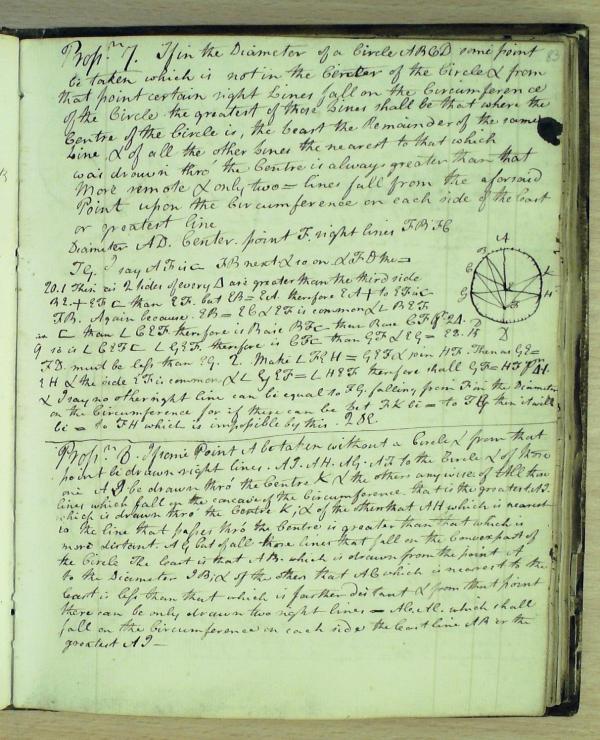 83
Propn. 7. If in the Diameter of a Circle ABCD some point
be taken which is not in the Center of the Circle & from
that point certain right Lines fall on the Circumference
of the Circle the greatest of those Lines shall be that where the
Centre of the Circle is, the Least the Remainder of the same
Line & of all the other Lines the nearest to that which
was drawn thro' the Centre is always greater than that
More remote & only two = lines fall from the aforsaid
Point upon the Circumference on each side of the Least
or greatest line
Diameter AD. Center point F. right lines FB. FC
FG. I say AF is ⊏ FB next & so on & FD the =
20.1 This is 2 sides of every Δ are greater than the third side
BE + EF ⊏ than BF. but EB = EA. therefore EA + to EF is ⊏
FB. Again because EB = EC & EF is common & L BEF
is ⊏ than L CEF therefore is Base BF ⊏ than Base CF
so is L CEF ⊏ L GEF. therefore is CF ⊏ than GF & EG = ED.
FD must be less than EG. 2. Make L FEH = GEF & join HF. Then as GE =
EH & the side EF is common & L GEF = L HEF therefore shall GF = HF
& I say no other right line can be equal to FG. falling from F in the Diameter
on the Circumference for if there can be let FK be = to FG then it will
be = to FH which is impossible by this. 2 DE.
Propn. 8. If some Point A be taken without a Circle & from that
point be drawn right lines. AI. AH. AG. AF to the Circle & of those
one AI be drawn thro' the Centre K & the others any wise of All those
lines which fall on the concave of the Circumference that is the greatest AI.
which is drawn thro' the Centre K; & of the other that AH which is nearest
to the line that passes thro' the Centre is greater than that which is
more distant. AG but of all those lines that fall on the Convex part of
the Circle The least is that AB. which is drawn from the point A
to the Diameter IB; & of the other that AC which is nearest to the
least is less than that which is farther distant & from that point
there can be only drawn two right lines = AC. AL. which shall
fall on the Circumference on each side the least line AB or the
greatest AI —
A
B
C
G
E
F
L
H
K
D